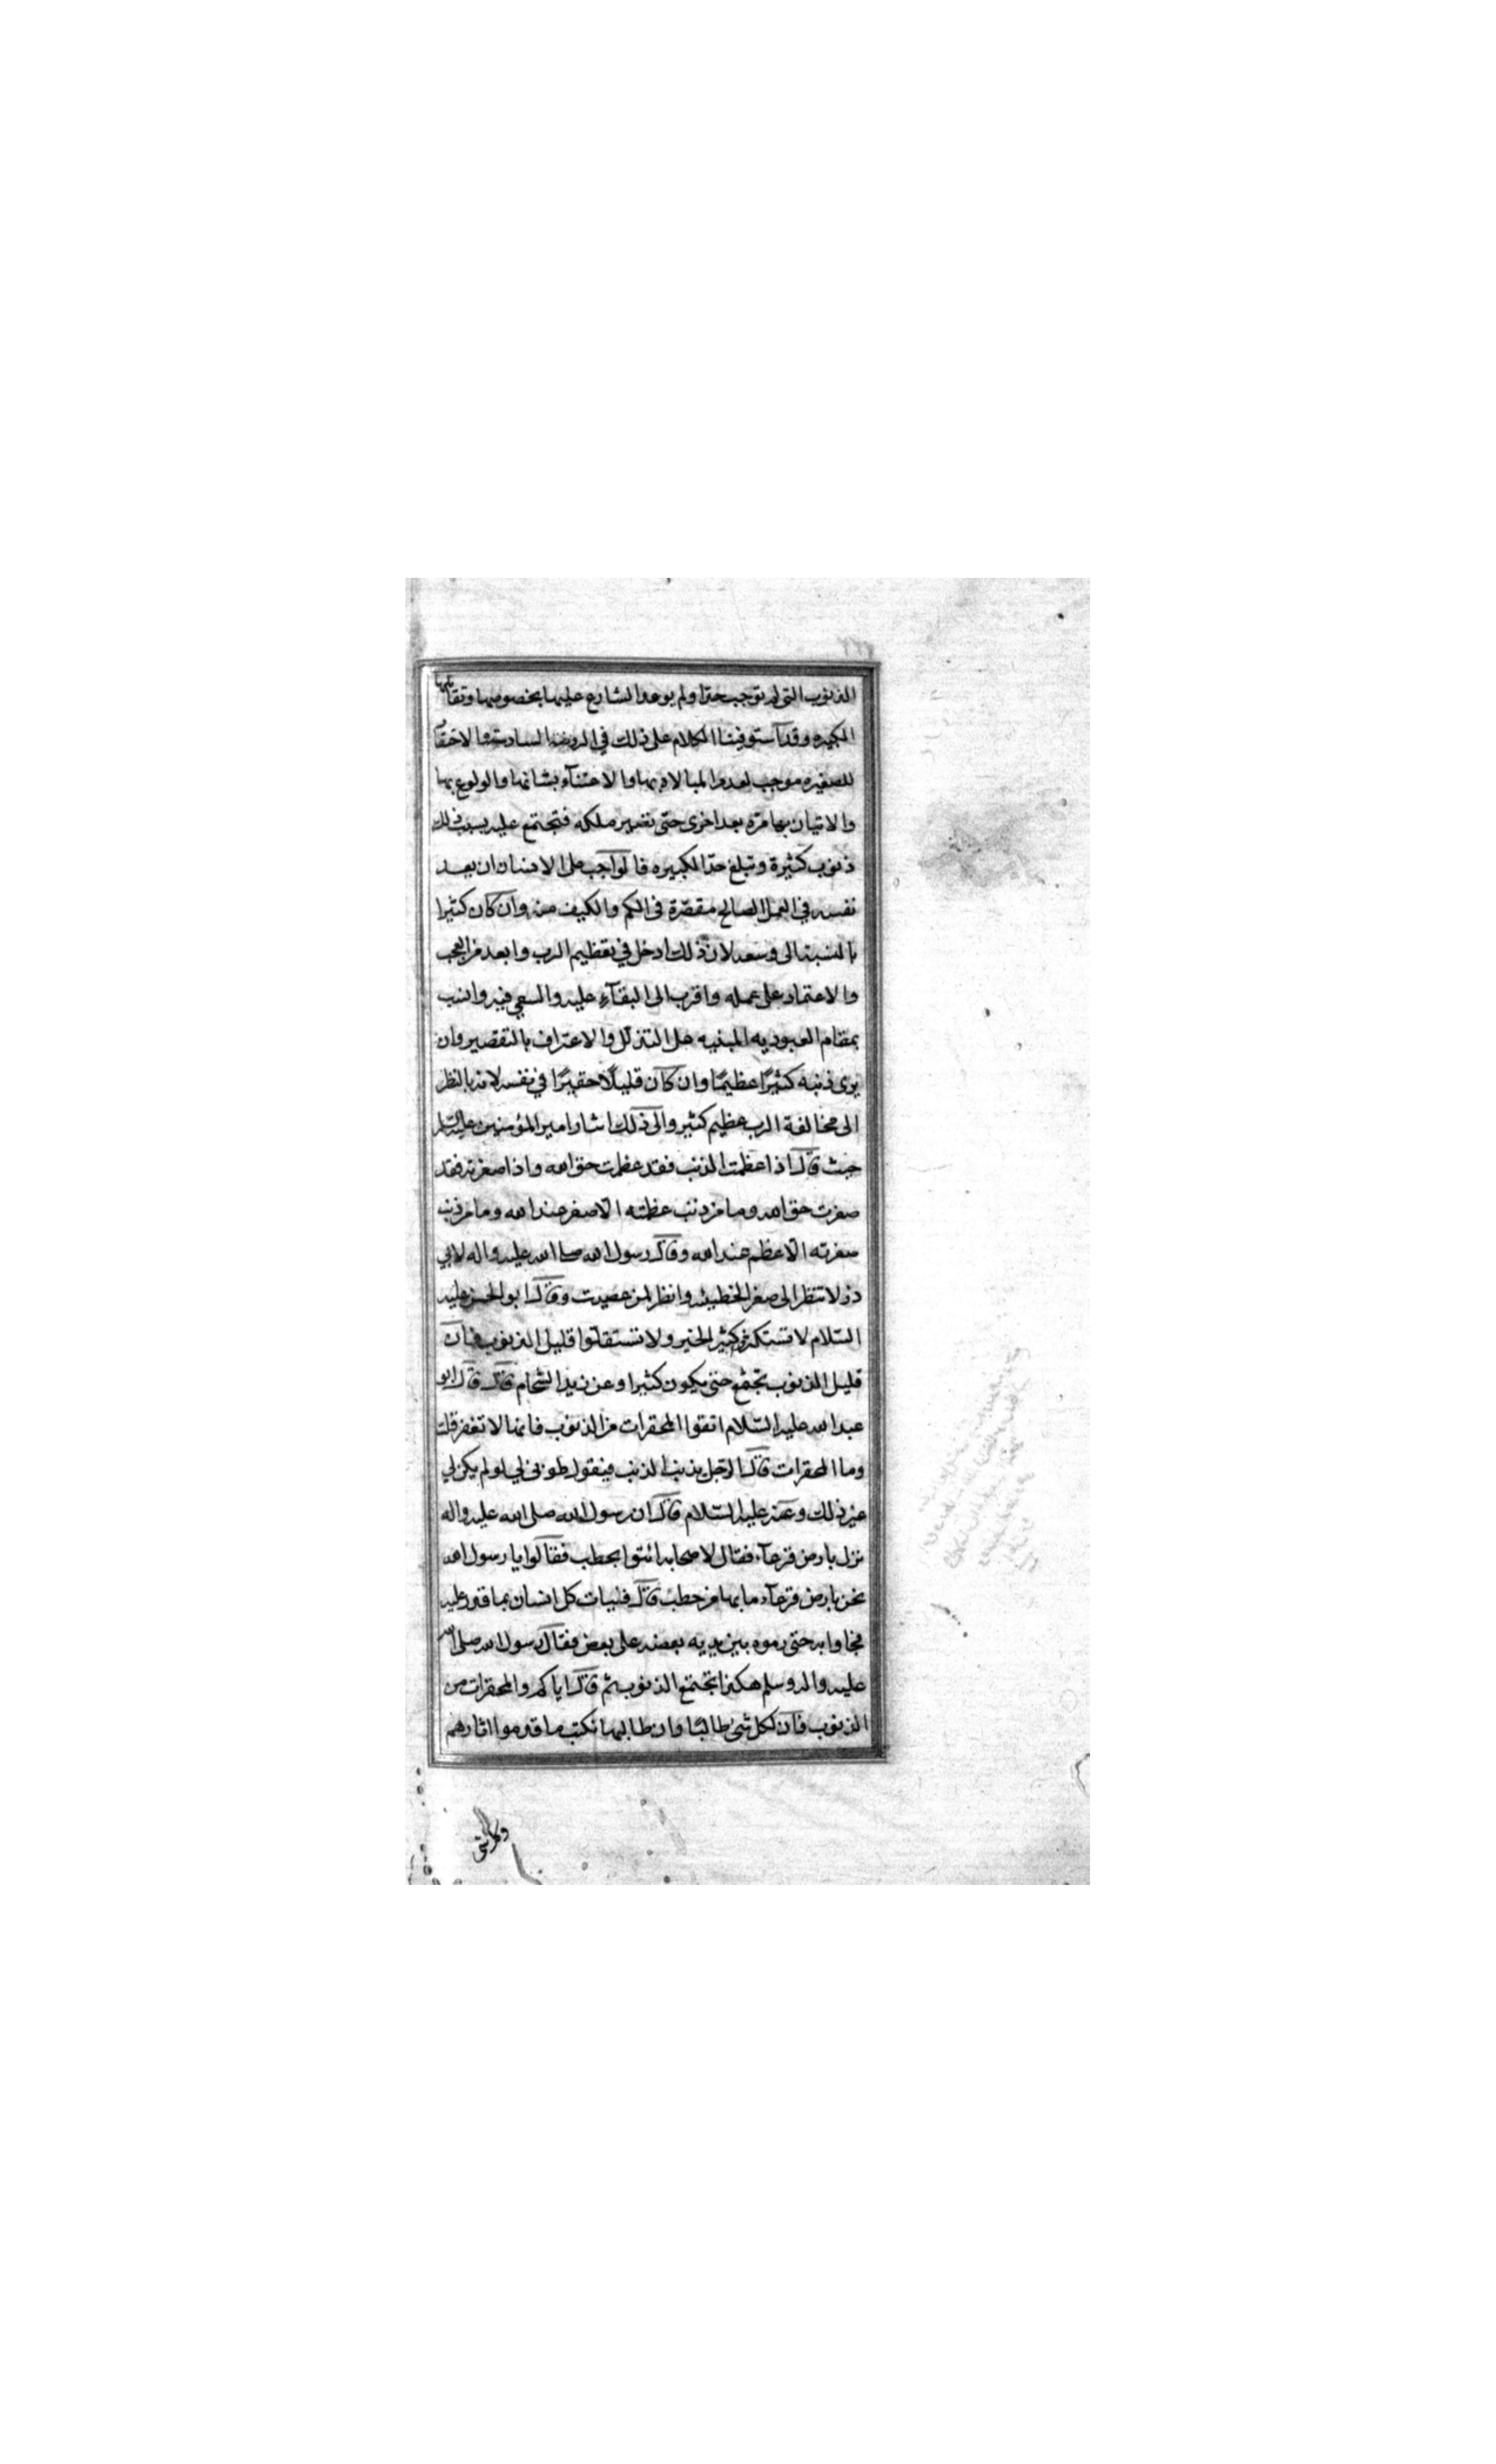 الذنوب التى لم توجب حدّا ولم يوعد الشارع عليها بخصوصها وتقابلها
الكبيره وقد استوفينا الكلام على ذلك في الروضه السادسة والاحتقار
للصغيره موجب لعدم المبالاة بها والاعتناء بشانها والولوع بها
والاتيان بها مرّة بعد اخرى حتى تصير ملكه فتجتمع عليه بسبب ذلك
ذنوب كثيرة وتبلغ حدّ الكبيره فالواجب على الانسان ان يعد
نفسه في العمل الصالح مقصّرة فى الكم والكيف منه وان كان كثيرا
بالنسبة الى وسعه لان ذلك ادخل في تعظيم الرب وابعد من العجب
والاعتماد على عمله واقرب الى البقاء عليه والسعي فيه وانسب
بمقام العبوديه المبنيه على التذلل والاعتراف بالتقصير وان
يرى ذنبه كثيرًا عظيمًا وان كان قليلًا حقيرًا في نفسه لانه بالنظر
الى مخالفة الرب عظيم كثير والى ذلك اشار امير المؤمنين عليه السلم
حيث قال اذا عظمت الذنب فقد عظمت حق الله واذا صغرته فقد
صغرت حق الله وما من ذنب عظمته الّا صغر عند الله وما من ذنب
صغرته الّا عظم عند الله وقال رسول الله صلى الله عليه واله لابي
ذر لا تنظر الى صغر الخطيئه وانظر لمن عصيت وقال ابو الحسن عليه
السّلام لا تستكثروا كثير الخير ولا تستقلّوا قليل الذنوب فان
قليل الذنوب تجمع حتى يكون كثيرا وعن زيد الشحام قال قال ابو
عبد الله عليه السّلام اتقوا المحقرات من الذنوب فانها لا تغفر قلت
وما المحقرات قال الرّجل يذنب الذنب فيقول طوبى لي لو لم يكن لي
غير ذلك وعنه عليه السّلام قال ان رسول الله صلى الله عليه واله
نزل بارض قرعاء فقال لاصحابه ائتوا بحطب فقالوا يا رسول الله
نحن بارض قرعاء ما بها من حطب قال فليات كل انسان بما قدر عليه
فجاوا به حتى رموه بين يديه بعضه على بعض فقال رسول الله صلى الله
عليه واله وسلم هكذا تجتمع الذنوب ثم قال اياكم والمحقرات من
الذنوب فان لكل شئ طالبًا وان طالبها نكتب ما قدموا اثارهم